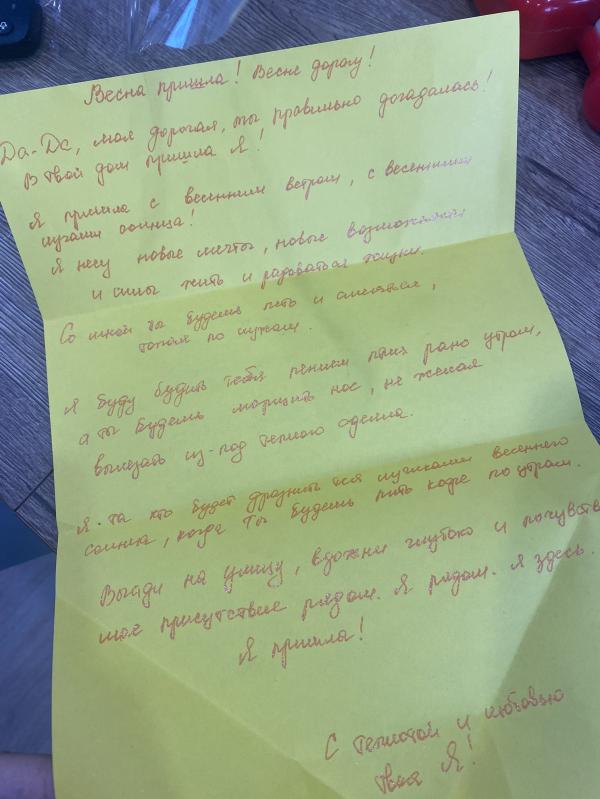 Весна пришла! Весне дорогу!
Да-Да, моя дорогая, ты правильно догадалась!
В твой дом пришла Я!
Я пришла с весенним ветром, с весенними
лучами солнца!
Я несу новые мечты, новые возможности
и силы жить и радоваться жизни.
Со мной ты будешь петь и смеяться,
топая по лужам.
Я буду будить тебя пением птиц рано утром,
а ты будешь морщить нос, не желая
вылезать из-под теплого одеяла.
Я - та кто будет дразнить тебя лучиками весеннего
солнца, когда ты будешь пить кофе по утрам.
Выйди на улицу, вдохни глубоко и почувствуй
мое присутствие рядом. Я рядом. Я здесь.
Я пришла!
С теплотой и любовью
Твоя Я!